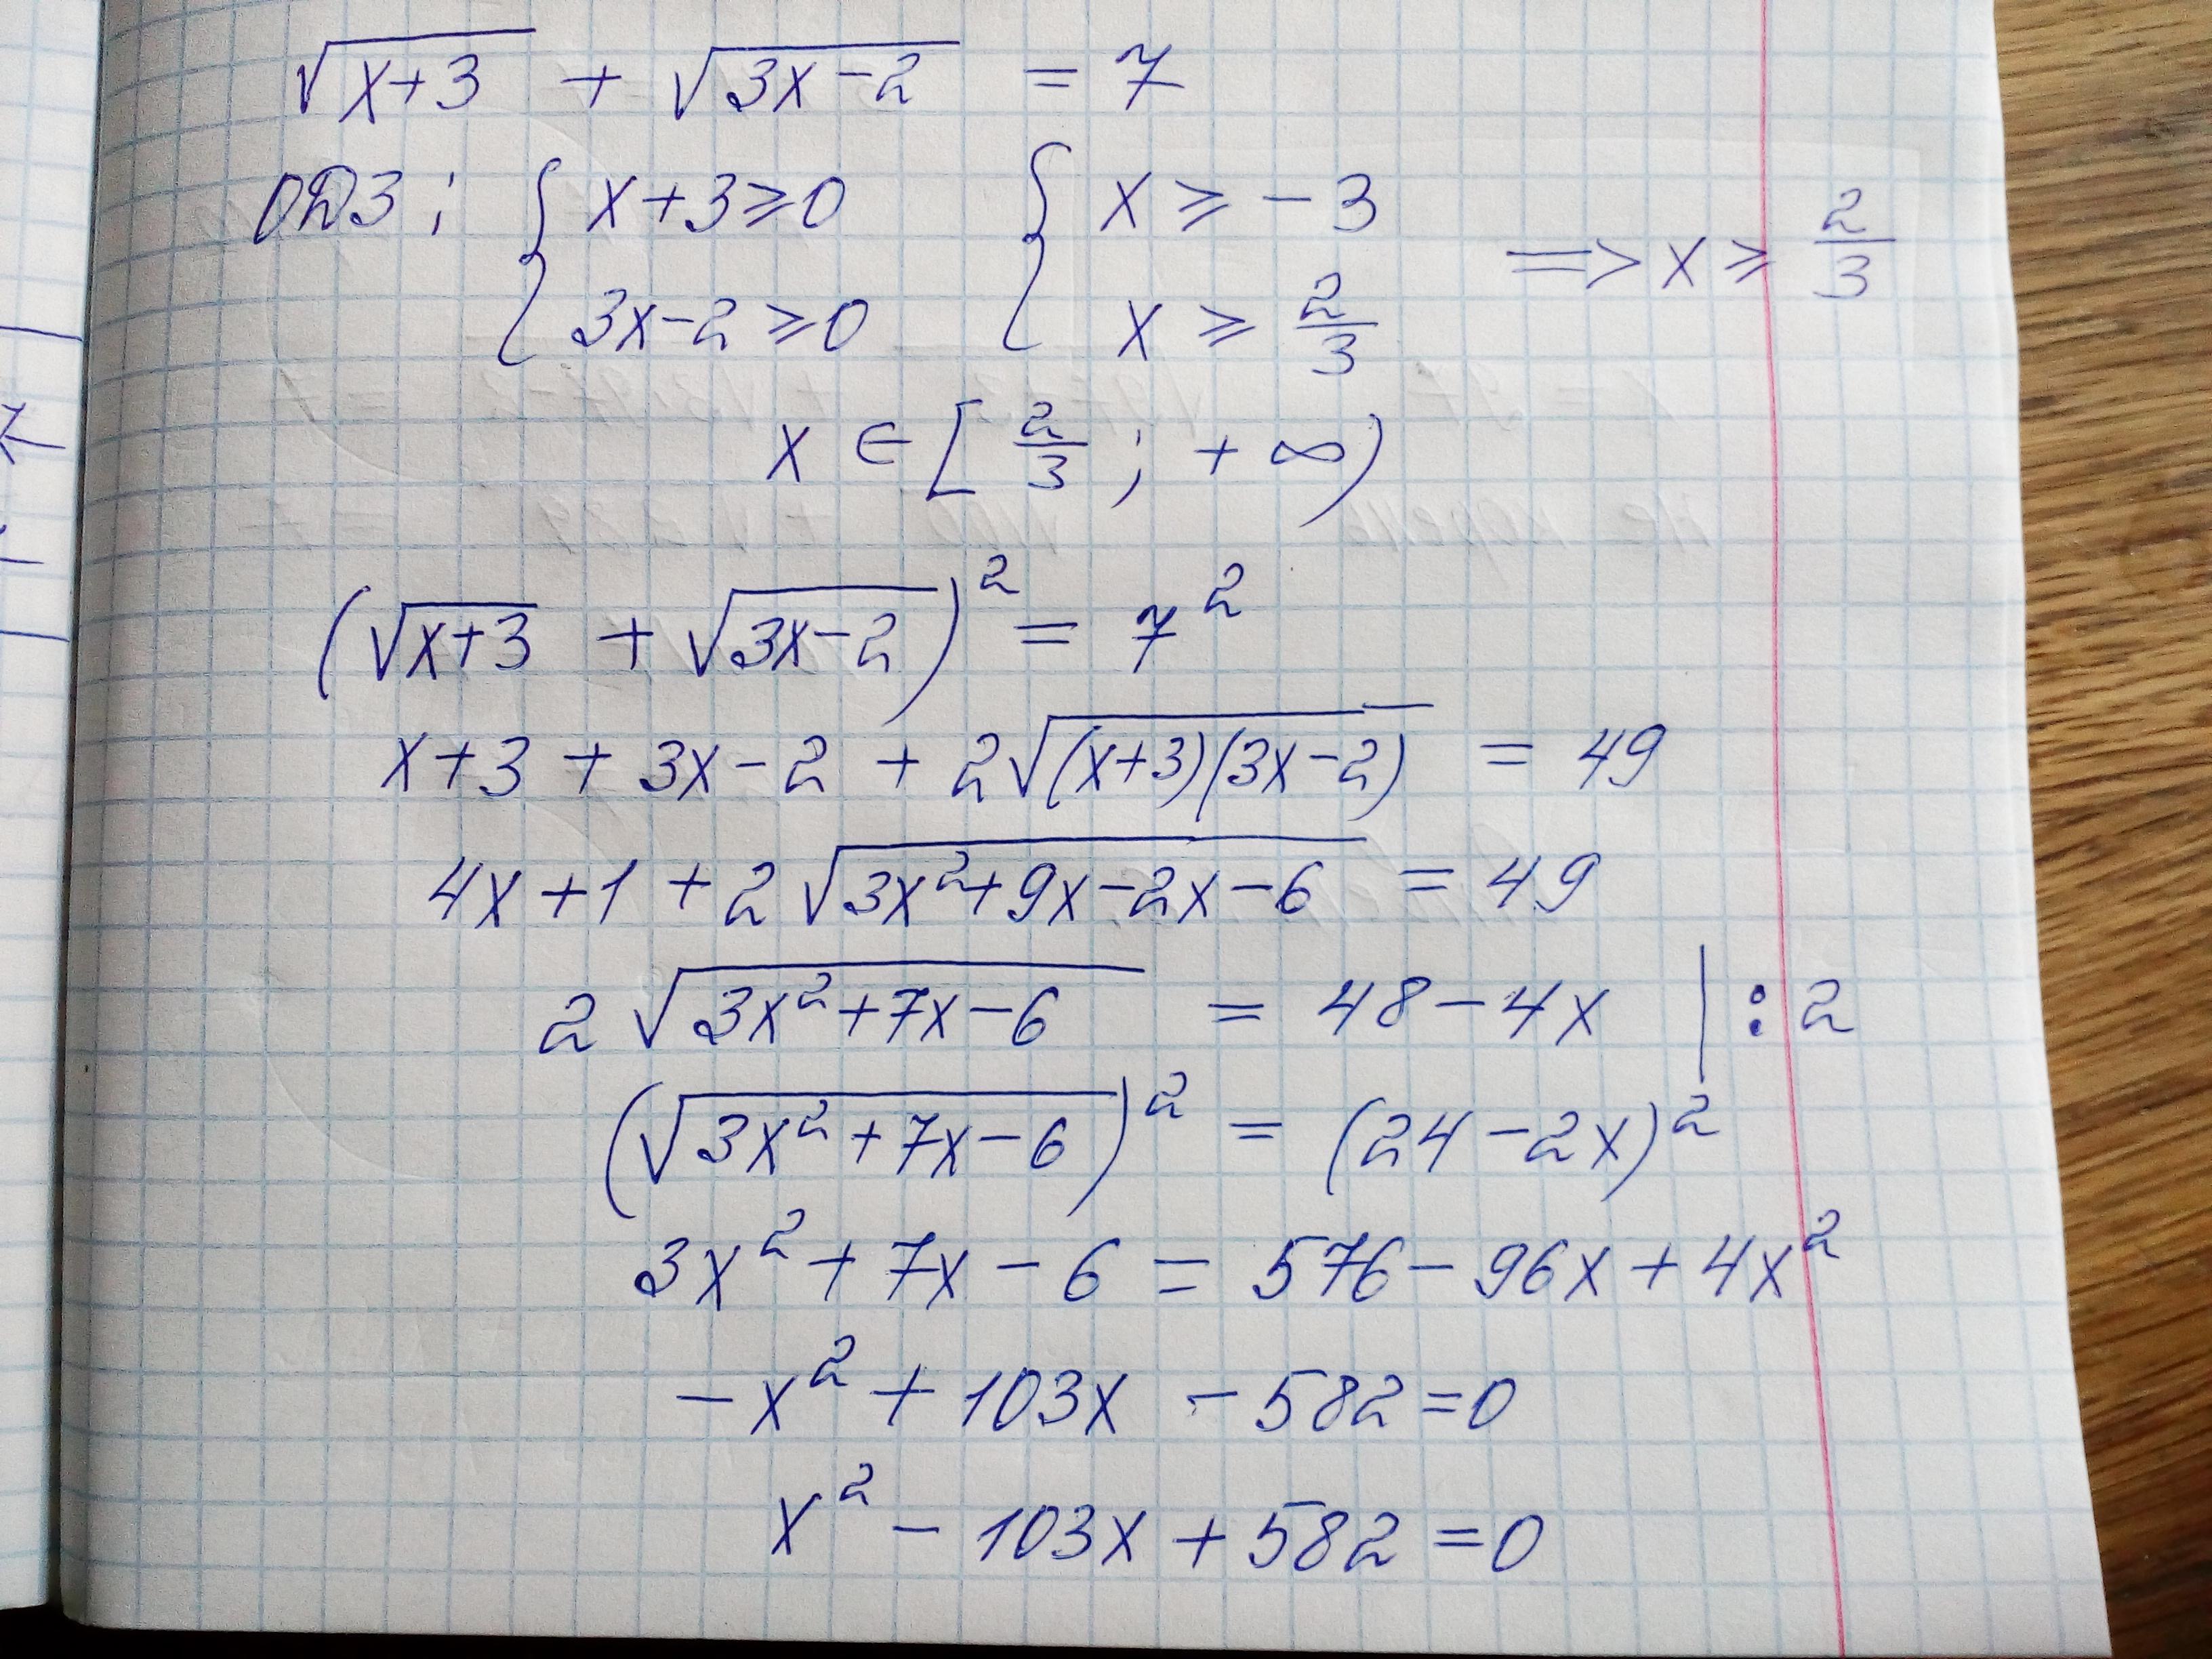 √(x+3) + √(3x-2) = 7
ОДЗ: { x+3≥0 { x ≥ -3
3x-2≥0 x ≥ 2/3 => x ≥ 2/3
x ∈ [2/3; +∞)
(√(x+3) + √(3x-2))² = 7²
x+3+3x-2 + 2√((x+3)(3x-2)) = 49
4x+1+2√(3x²+9x-2x-6) = 49
2√(3x²+7x-6) = 48-4x | : 2
(√(3x²+7x-6))² = (24-2x)²
3x²+7x-6 = 576-96x+4x²
-x²+103x-582=0
x²-103x+582=0